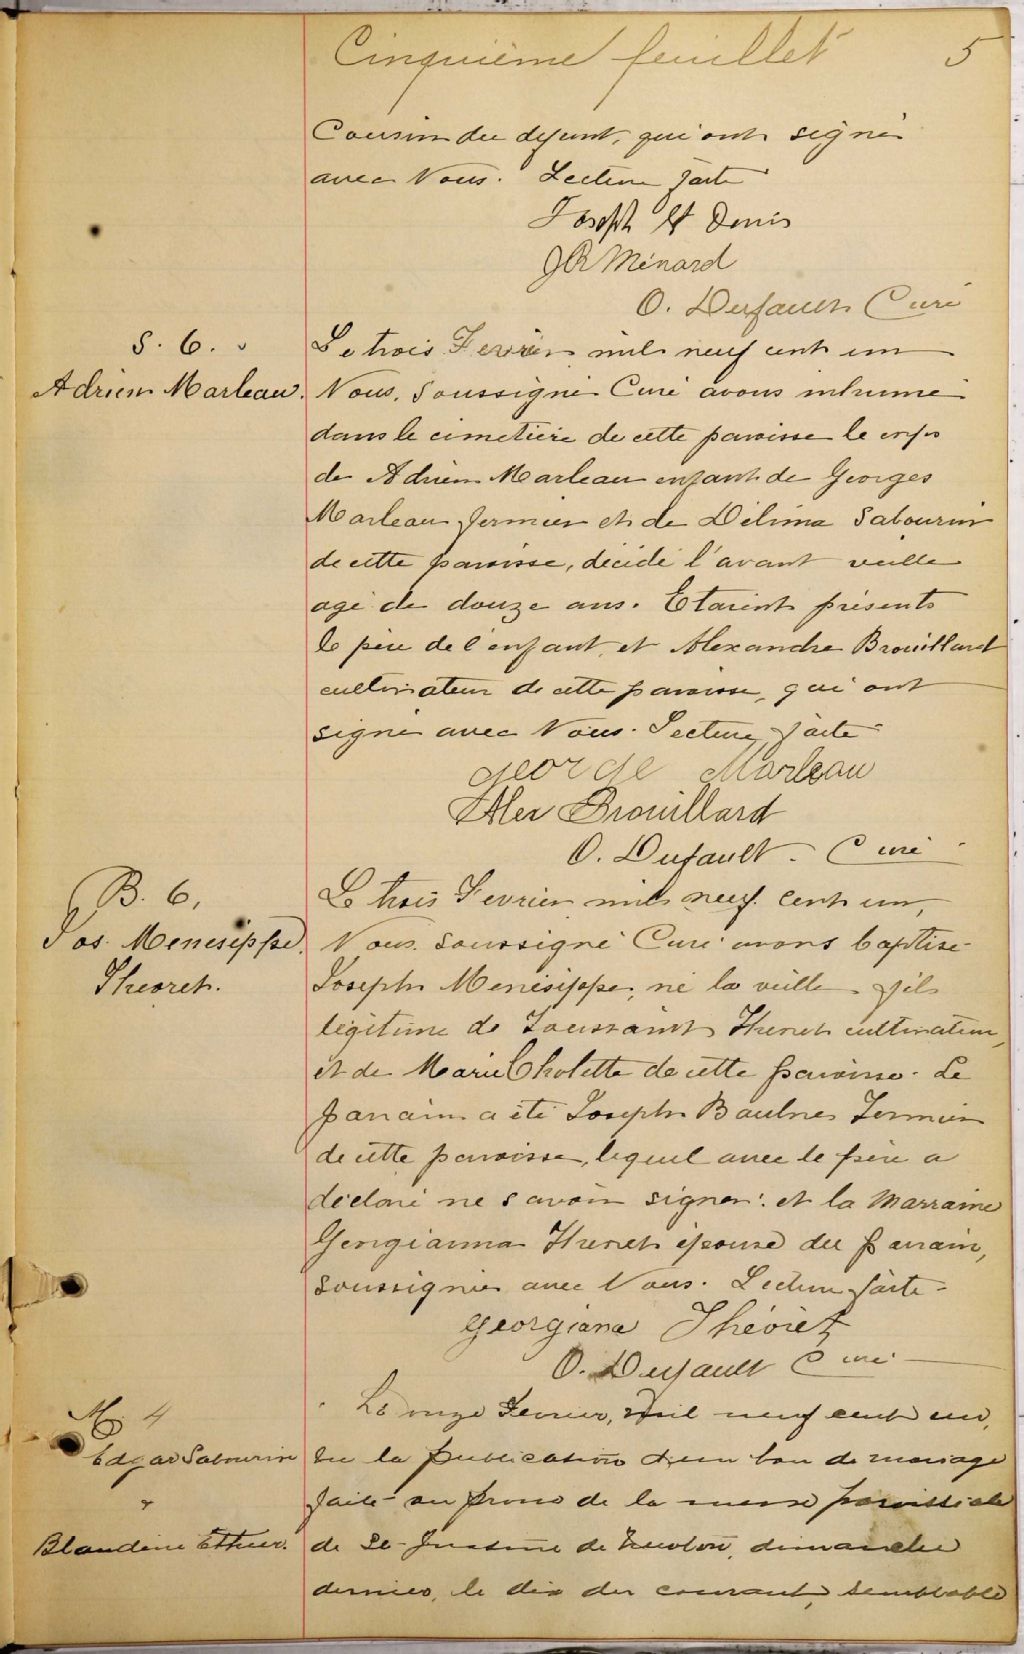 Cinquième feuillet 5
Cousin du défunt, qui ont signé
avec Nous. Lecture faite
Joseph St Denis
JR Ménard
O. Dufault Curé
S. 6.
Adrien Marleau.
Le trois Fevrier mil neuf cent un
Nous, soussigné Curé avons inhumé
dans le cimetière de cette paroisse le corps
de Adrien Marleau enfant de Georges
Marleau fermier et de Délima Sabourin
de cette paroisse, décédé l'avant veille
agé de douze ans. Etaient présents
le père de l'enfant et Alexandre Brouillard
cultivateur de cette paroisse, qui ont
signé avec Nous. Lecture faite
George Marleau
Alex Brouillard
O. Dufault. Curé
B. 6,
Jos. Menesippe
Theoret.
Le trois Fevrier mil neuf cent un,
Nous soussigné Curé avons baptisé
Joseph Menesippe, né la veille fils
légitime de Toussaint Theoret cultivateur,
et de Marie Cholette de cette paroisse. Le
parrain a été Joseph Baulne Fermier
de cette paroisse, lequel avec le père a
déclaré ne savoir signer: et la Marraine
Georgianna Theoret épouse du parrain,
soussignée avec Nous. Lecture faite
Georgiana Théorêt
O. Dufault Curé
M. 4
Edgar Sabourin
Blandine Ethier.
Le onze Fevrier, mil neuf cent un,
Vu la publication d'un ban de mariage
faite au prone de la messe paroissiale
de Ste Justine de Newton, dimanche
dernier, le dix du courant, semblable